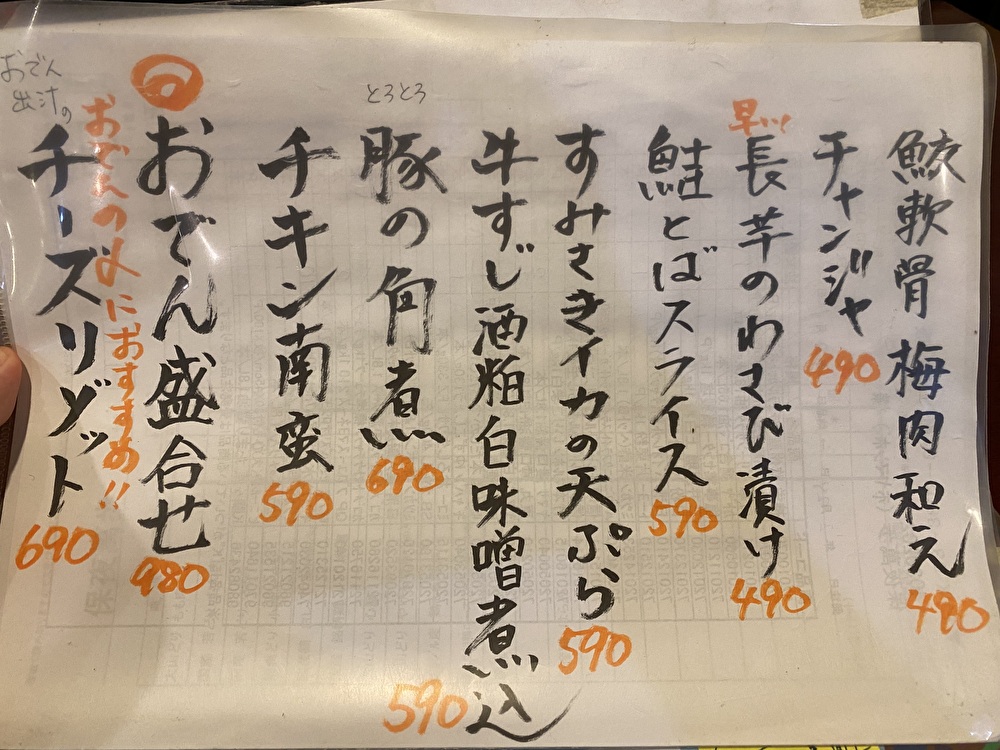 鮫軟骨梅肉和え
490
チャンジャ
490
早い!
長芋のわさび漬け
490
鮭とばスライス
590
すみさきイカの天ぷら
590
牛すじ酒粕白味噌煮込
590
とろとろ
豚の角煮
690
チキン南蛮
590
おでん盛合せ
980
おでんの〆におすすめ!!
おでん
出汁の
チーズリゾット
690